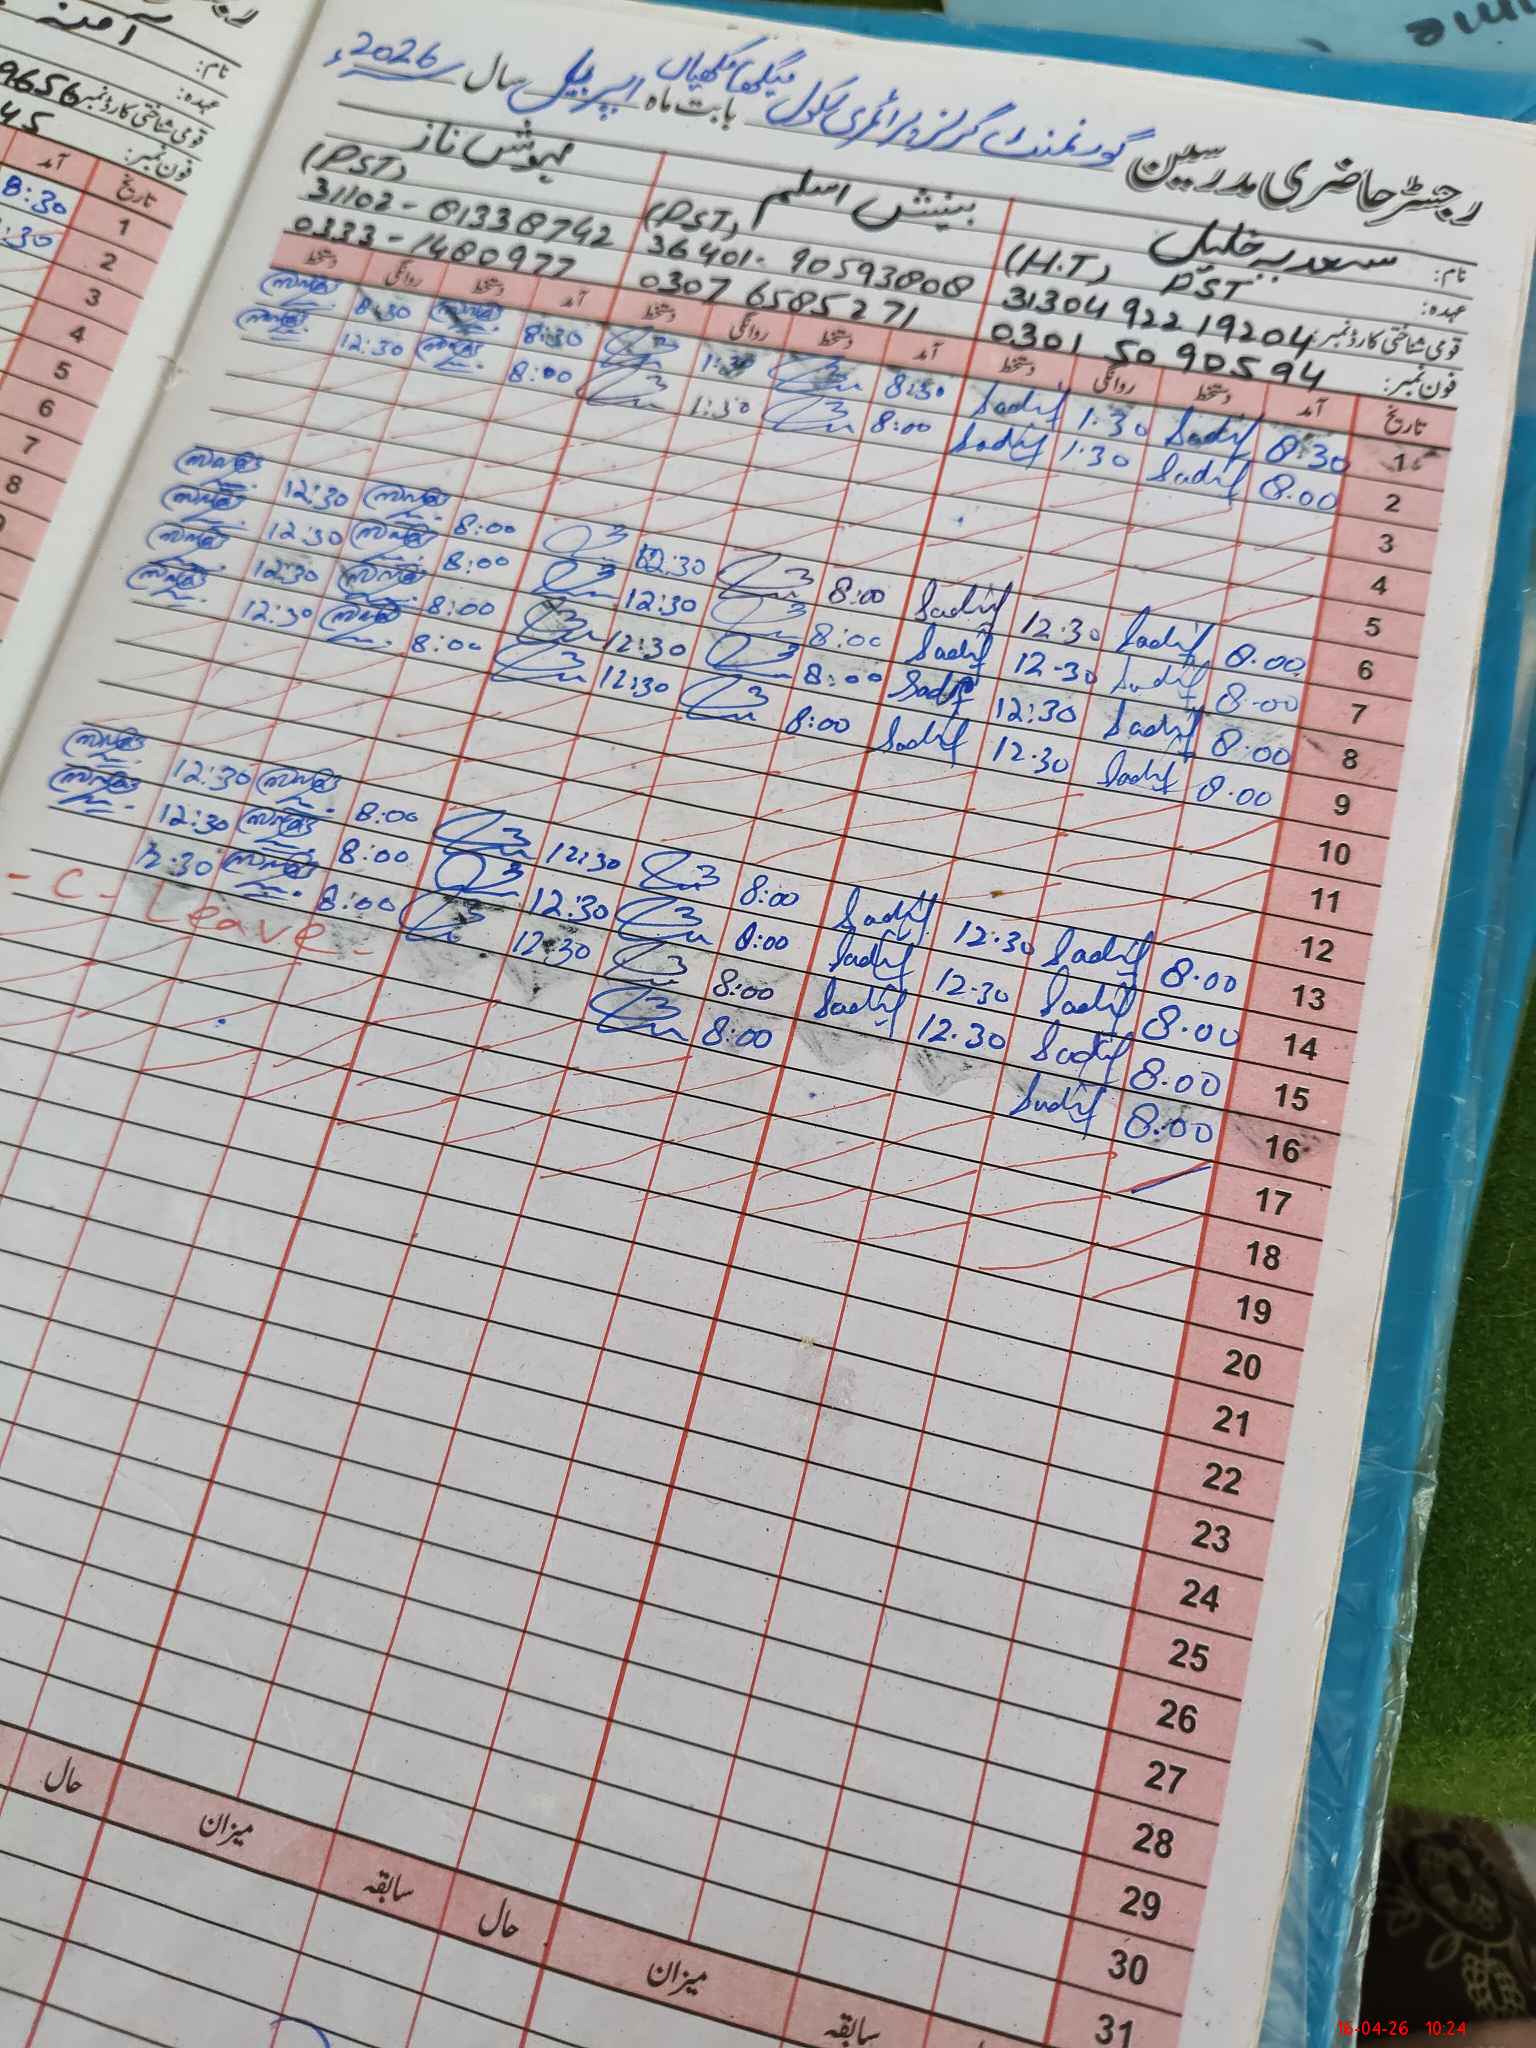 رجسٹر حاضری مدرسین گورنمنٹ گرلز پرائمری سکول بابت ماہ اپریل سال 2026ء
نام: سعدیہ خلیل بینش اسلم مہوش ناز
عہدہ: (H.T) PST (PST) (PST)
قومی شناختی کارڈ نمبر: 31304 922 19204 36401- 90593808 31102-81338742
فون نمبر: 0301 50 90594 0307 6585271 0333-1480977
تاریخ آمد دستخط روانگی دستخط آمد دستخط روانگی دستخط آمد دستخط روانگی دستخط
1 8:30 Sadif 1:30 Sadif 8:30 1:30 8:30 8:30
2 8.00 Sadif 1.30 Sadif 8:00 1:30 8:00 12:30
3
4
5
6 8.00 Sadif 12.30 Sadif 8:00 12:30 8:00 12:30
7 8.00 Sadif 12-30 Sadif 8:00 12:30 8:00 12:30
8 8:00 Sadif 12:30 Sadif 8:00 12:30 8:00 12:30
9 8.00 Sadif 12.30 Sadif 8:00 12:30 8:00 12:30
10
11
12
13 8.00 Sadif 12.30 Sadif 8:00 12:30 8:00 12:30
14 8.00 Sadif 12.30 Sadif 8:00 12:30 8:00 12:30
15 8.00 Sadif 12.30 Sadif 8:00 12:30 8:00 12.30
16 8.00 Sadif 8:00 - C - Leave -
17
18
19
20
21
22
23
24
25
26
27
28
29
30
31
سابقہ میزان حال سابقہ میزان حال
نام: آمنہ
عہدہ:
قومی شناختی کارڈ نمبر 9656
فون نمبر: 45
تاریخ آمد
1 8:30
2 :30
3
4
5
6
7
8
16-04-26 10:24